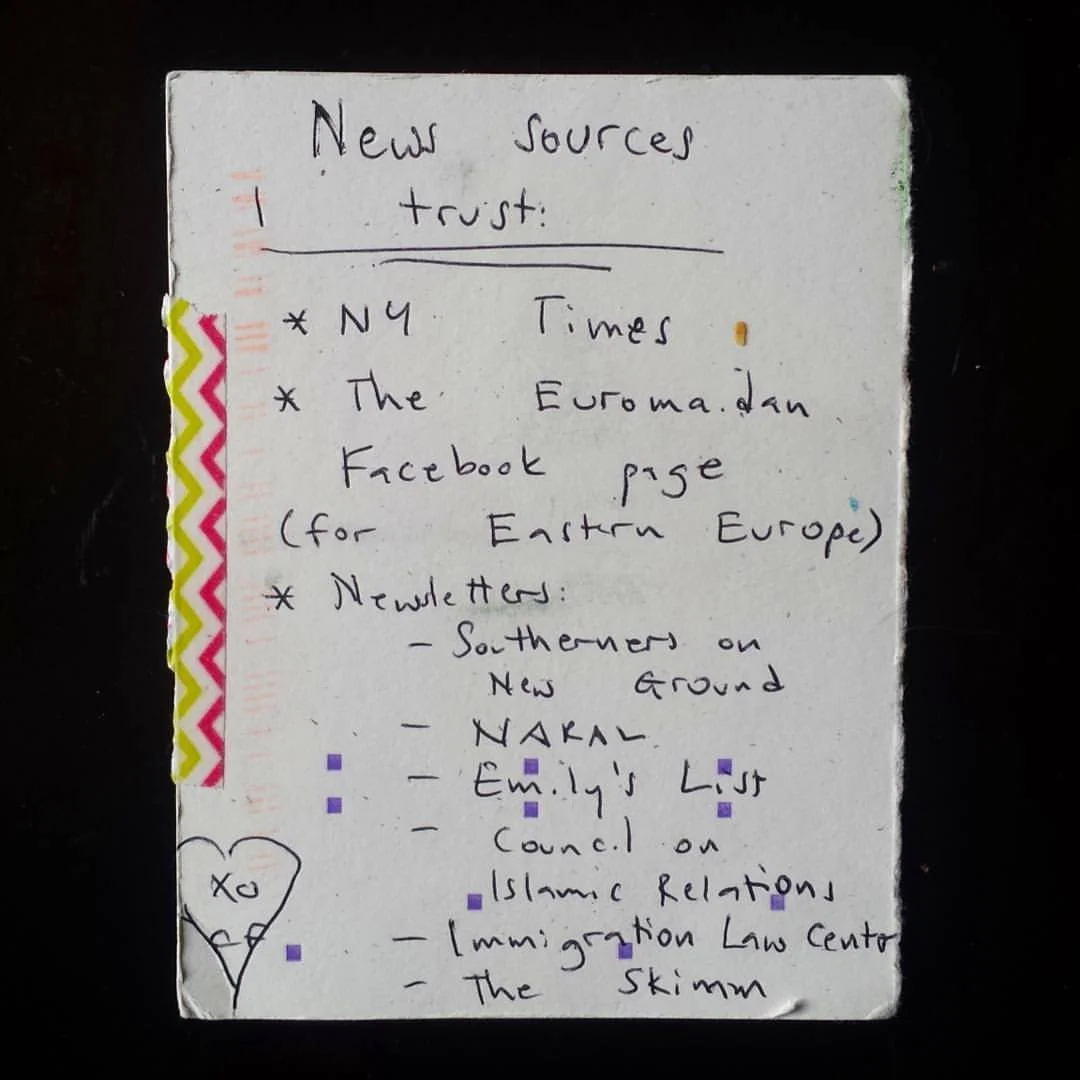 News sources
I trust:
* NY Times
* The Euromaidan
Facebook page
(for Eastern Europe)
* Newsletters:
- Southerners on
New Ground
- NARAL
- Emily's List
- Council on
Islamic Relations
- Immigration Law Center
- The Skimm
XO